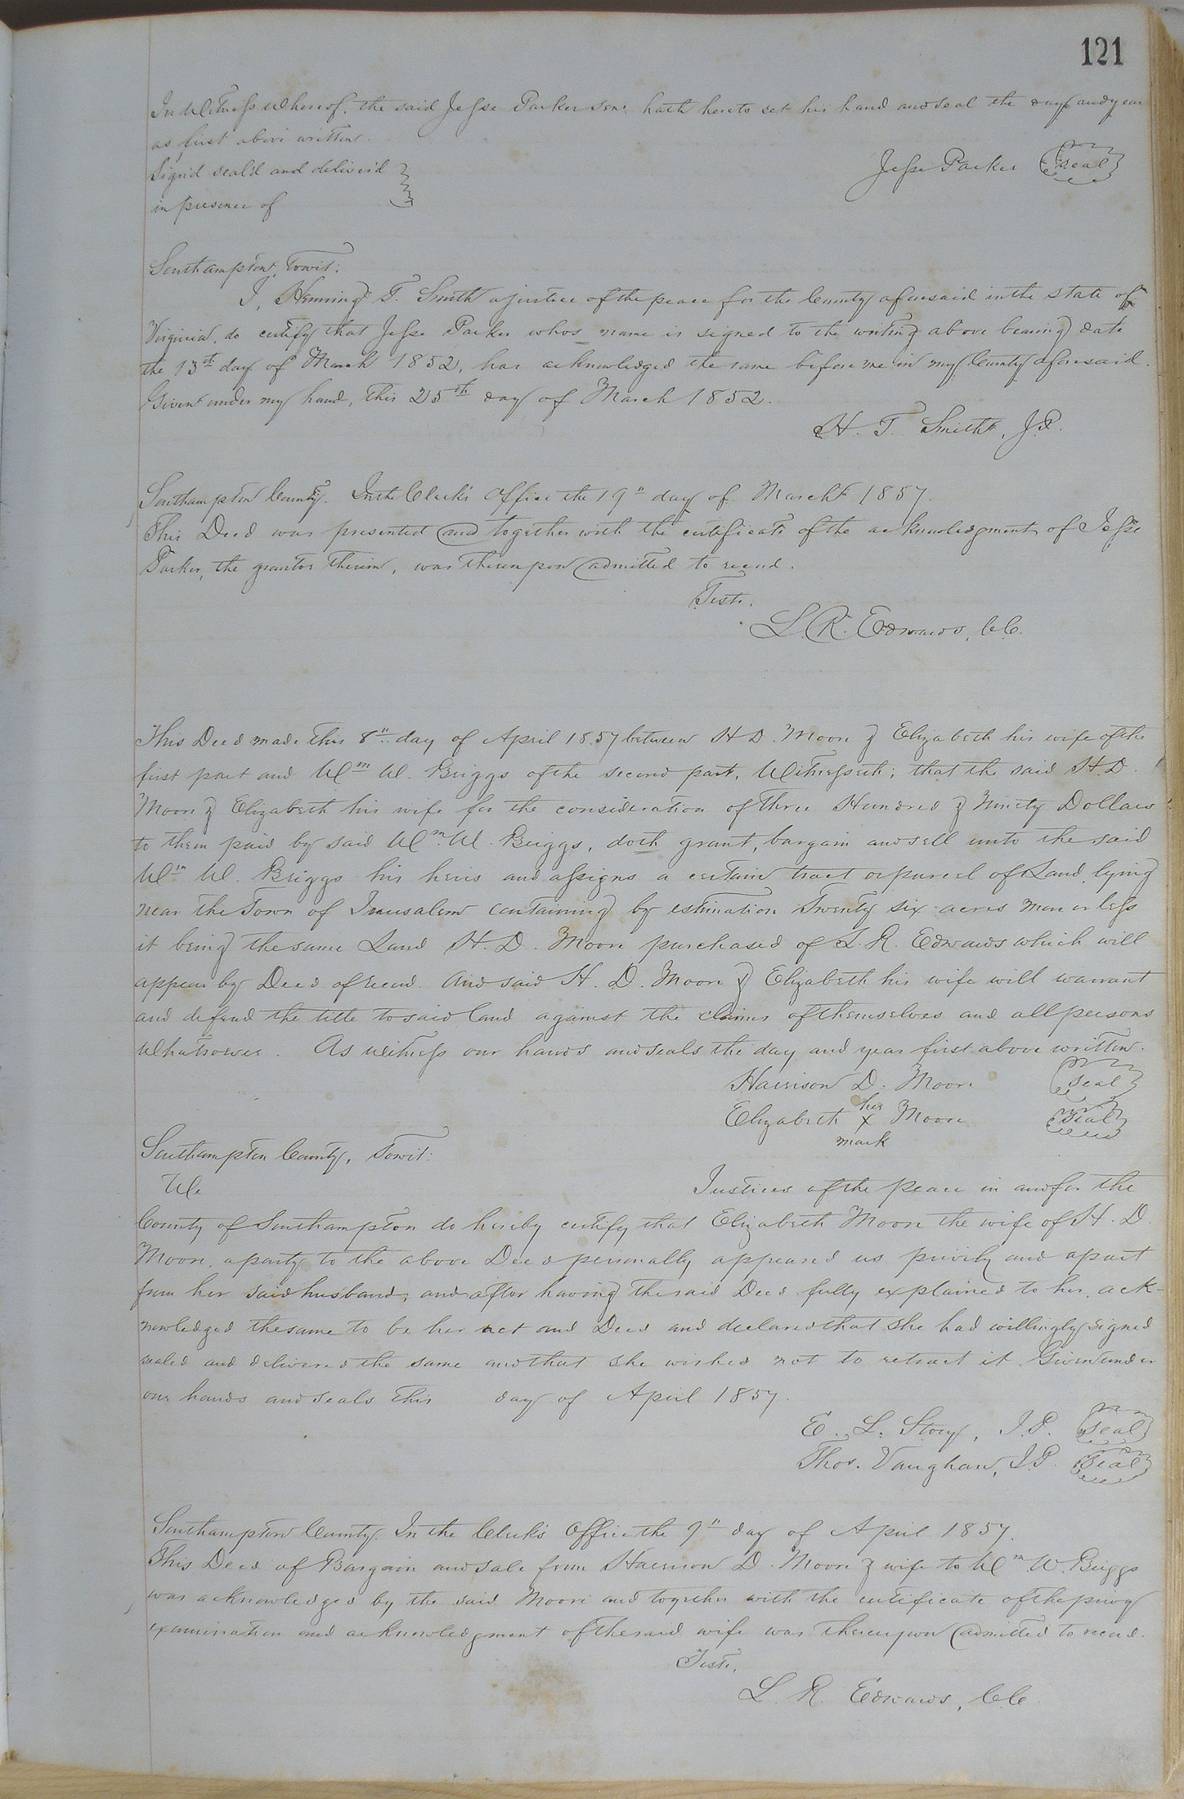 121
In Witness Whereof, the said Jesse Parker Senr. hath hereto set his hand and seal the day and year
as first above written.
Sign'd seal'd and deliver'd
in presence of
Jesse Parker (Seal)
Southampton, Towit:
I, Henning T. Smith a justice of the peace for the County aforesaid in the state of
Virginia, do certify that Jesse Parker whos name is signed to the writing above bearing date
the 13th day of March 1852, has acknowledged the same before me in my County aforesaid.
Given under my hand, this 25th day of March 1852.
H. T. Smith, J.P.
Southampton County. In the Clerk's Office the 19" day of March 1857.
This Deed was presented and together with the certificate of the acknowledgment of Jesse
Parker, the grantor therein, was thereupon admitted to record.
Teste.
L. R. Edwards, C.C.
This Deed made this 8" day of April 1857 between H. D. Moore & Elizabeth his wife of the
first part and Wm W. Briggs of the second part, Witnesseth; that the said H. D.
Moore & Elizabeth his wife for the consideration of Three Hundred & Ninety Dollars
to them paid by said Wm. W. Briggs, doth grant, bargain and sell unto the said
Wm W. Briggs his heirs and assigns a certain tract or parcel of Land lying
near the Town of Jerusalem containing by estimation Twenty six acres more or less
it being the same Land H. D. Moore purchased of L. R. Edwards which will
appear by Deed of record. And said H. D. Moore & Elizabeth his wife will warrant
and defend the title to said land against the claims of themselves and all persons
Whatsoever. As witness our hands and seals the day and year first above written.
Harrison D. Moore (Seal)
Elizabeth her X mark Moore (Seal)
Southampton County, Towit:
We Justices of the peace in and for the
County of Southampton do hereby certify that Elizabeth Moore the wife of H. D.
Moore, a party to the above Deed personally appeared us privily and apart
from her said husband, and after having the said Deed fully explained to her, ack-
nowledged the same to be her act and Deed and declared that she had willingly signed
sealed and delivered the same and that she wished not to retract it. Given under
our hands and seals this day of April 1857.
E. L. Story, J.P. (Seal)
Thos. Vaughan, J.P. (Seal)
Southampton County. In the Clerk's Office the 9" day of April 1857.
This Deed of Bargain and sale from Harrison D. Moore & wife to Wm W. Briggs
was acknowledged by the said Moore and together with the certificate of the privy
examination and acknowledgment of the said wife was thereupon admitted to record.
Teste.
L. R. Edwards, C.C.